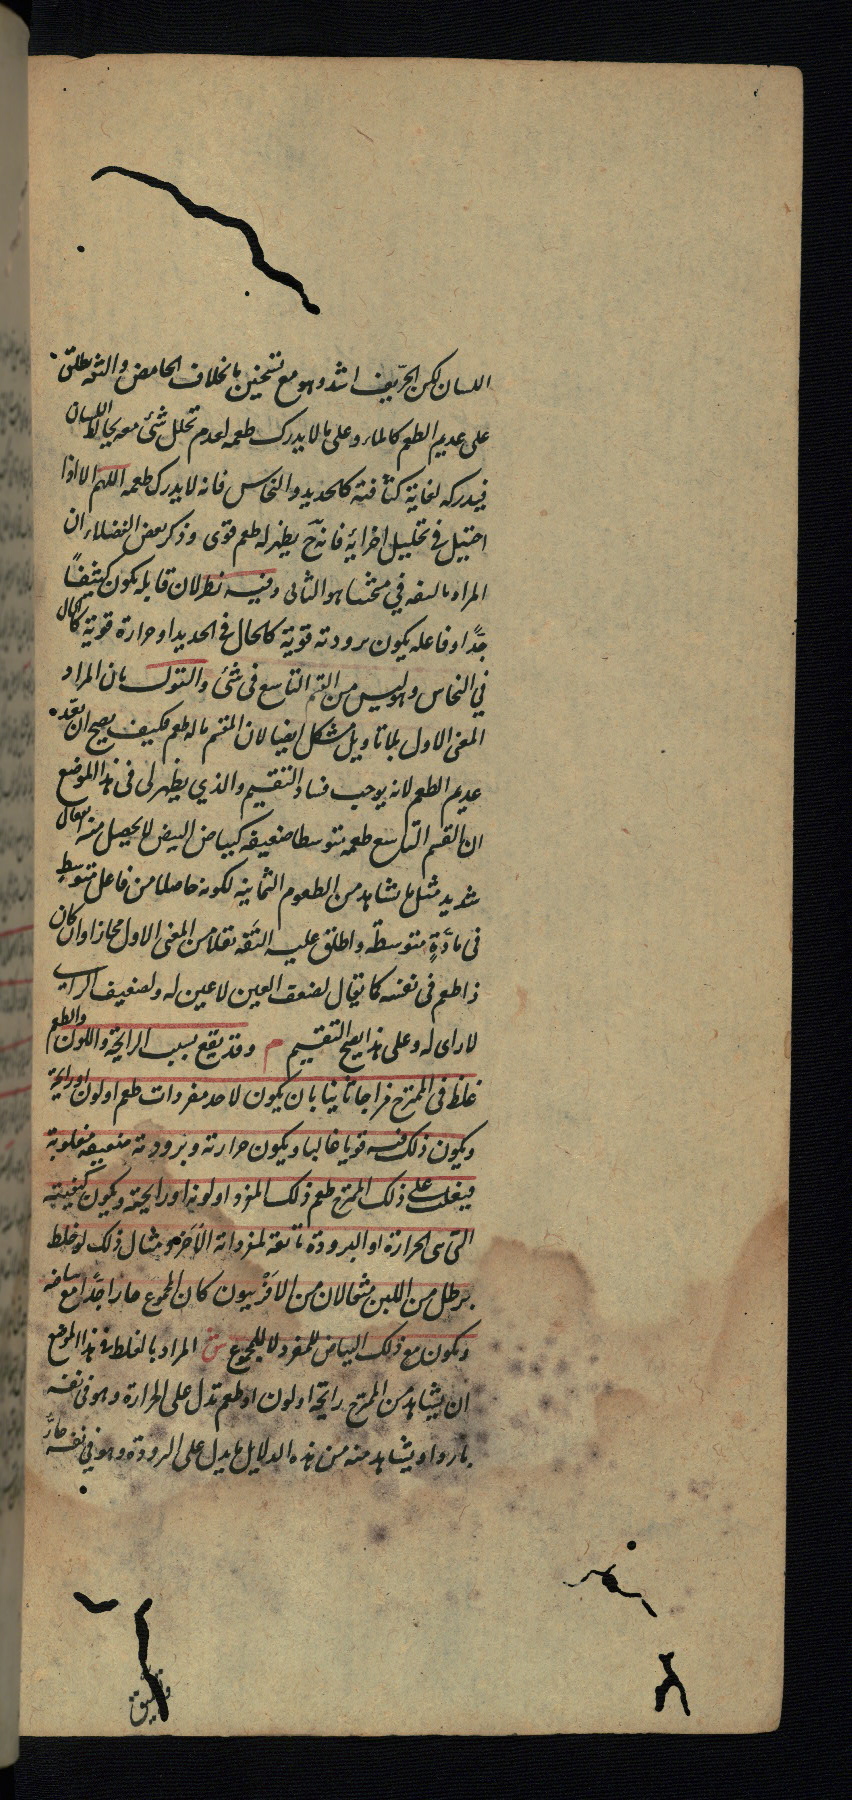 اللسان لكن الحرّيف اشد وهو مع تسخين بالخلاف الحامض والتفه يطلق
على عديم الطعم كالماء وعلى ما لا يدرك طعمه لعدم تحلل شئ معه يخالط اللسان
فيدركه لغاية كثافته كالحديد والنحاس فانه لا يدرك طعمه اللهم الا اذا
احتيل فى تحليل اجزائه فانه ح يظهر له طعم قوى وذكر بعض الفضلاء ان
المراد بالتفه في مبحثنا هو الثانى وفيه نظر لان قابله يكون كثيفًا
جدًا وفاعله يكون برودته قوية كالحال فى الحديد او حرارة قوية كالحال
في النحاس وهو ليس من القسم التاسع فى شئ والقول بان المراد
المعنى الاول بلا تاويل مشكل ايضا لان المقسم ما له طعم فكيف يصح ان يعد
عديم الطعم لانه يوجب فساد التقسيم والذي يظهر لى فى هذا الموضع
ان القسم التاسع طعمه متوسطا ضعيفه كبياض البيض لا يحصل منه انفعال
شديد مثل ما تشاهد من الطعوم الثمانية لكونه حاصلا من فاعل متوسط
فى مادّةٍ متوسطة واطلق عليه التفه نقلا من المعنى الاول مجازا وان كان
ذا طعم فى نفسه كما يقال لضعف العين لا عين له ولضعيف الراى
لا راى له وعلى هذا يصح التقسيم م وقد يقع بسبب الرايحة واللون والطعم
غلط فى الممتزج مزاجا ثانيا بان يكون لاحد مفردات طعم او لون او رايحة
ويكون ذلك فيه قويا غالبا ويكون حرارته وبرودته ضعيفه مغلوبة
فيغلب على ذلك الممتزج طعم ذلك المفرد او لونه او رايحته ويكون كيفيته
التى هى الحرارة او البرودة تابعة لمفرداته الاخر ومثال ذلك لو خلط
برطل من اللبن مثقالان من الافربيون كان المجموع حارا جدًا مع بياضه
ويكون مع ذلك البياض للمفرد لا للمجموع ش المراد بالغلط فى هذا الموضع
ان يشاهد من الممتزج رايحة او لون او طعم تدل على الحرارة وهو فى نفسه
بارد او يشاهد منه من هذه الدلايل ما يدل على البرودة وهو في نفسه حارّ